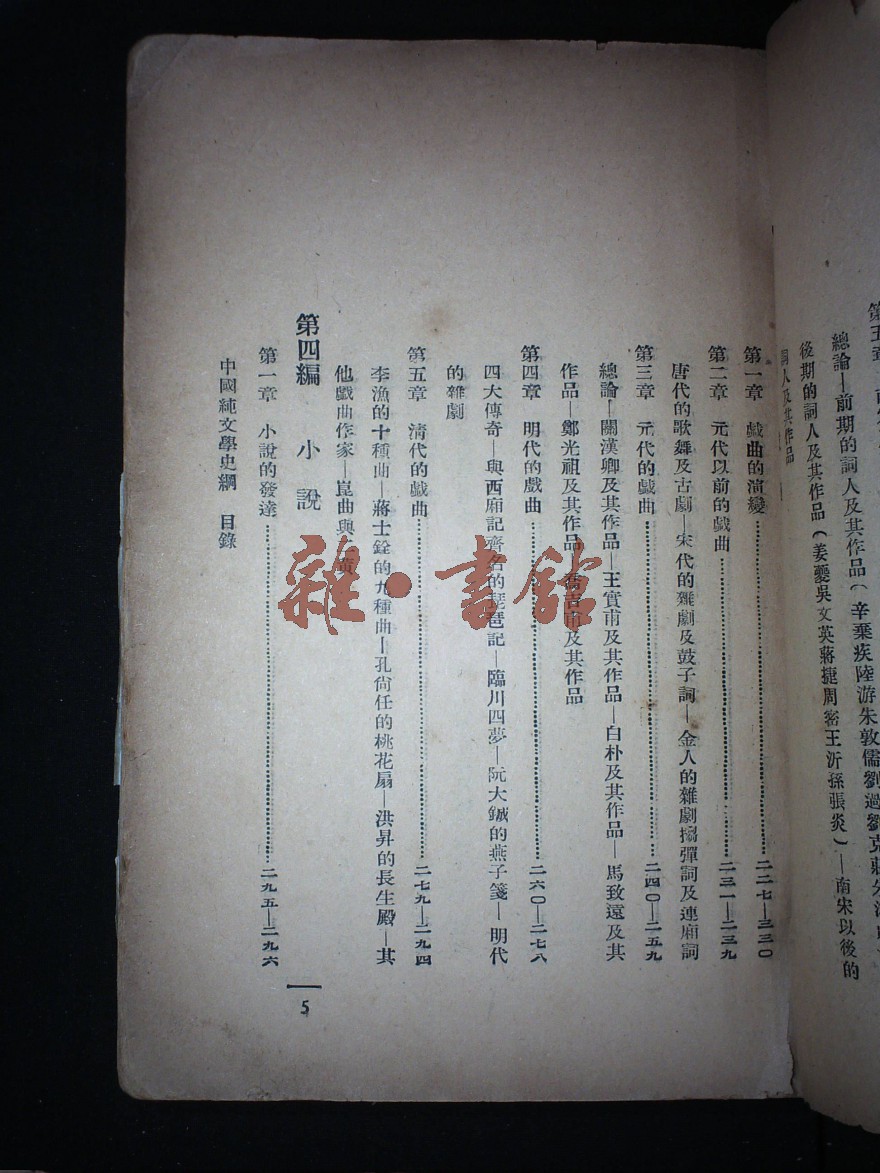 總論—前期的詞人及其作品（辛棄疾陸游朱敦儒劉過劉克莊
後期的詞人及其作品（姜夔吳文英蔣捷周密王沂孫張炎）—南宋以後的
詞人及其作品
第一章 戲曲的演變……二二七—三三〇
第二章 元代以前的戲曲……二三一—二三九
唐代的歌舞及古劇—宋代的雜劇及鼓子詞—金人的雜劇搊彈詞及連廂詞
第三章 元代的戲曲……二四〇—二五九
總論—關漢卿及其作品—王實甫及其作品—白朴及其作品—馬致遠及其
作品—鄭光祖及其作品—喬吉甫及其作品
第四章 明代的戲曲……二六〇—二七八
四大傳奇—與西廂記齊名的琵琶記—臨川四夢—阮大鋮的燕子箋—明代
的雜劇
第五章 清代的戲曲……二七九—二九四
李漁的十種曲—蔣士銓的九種曲—孔尚任的桃花扇—洪昇的長生殿—其
他戲曲作家—崑曲與
第四編 小說
第一章 小說的發達……二九五—二九六
中國純文學史綱 目錄
5
雜·書館